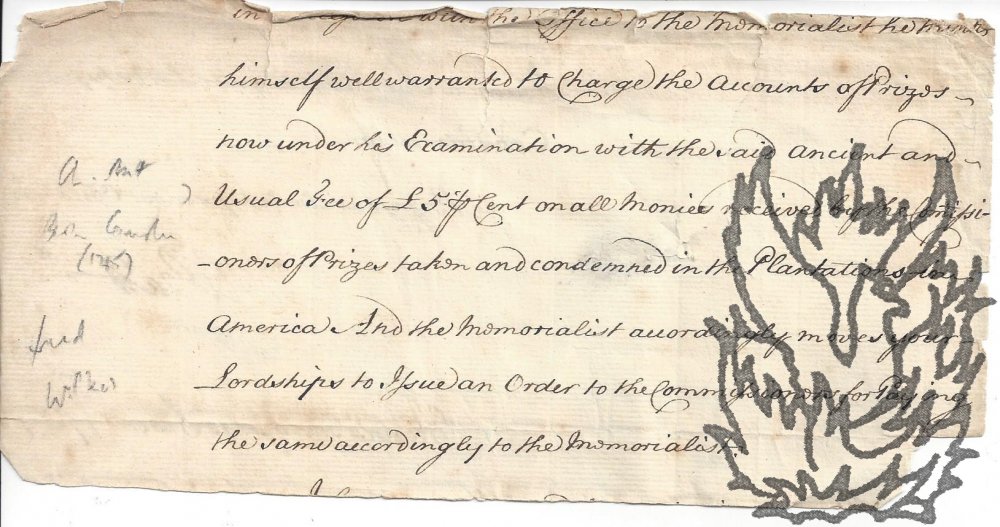 in with the Office to the Memorialist he
himself well warranted to Charge the Accounts of Prizes
now under his Examination with the said Ancient and
Usual Fee of £5 ⅌ Cent on all Monies received by the Comissi-
-oners of Prizes taken and condemned in the Plantations in
America And the Memorialist accordingly moves your
Lordships to Issue an Order to the Commissioners for Paying
the same accordingly to the Memorialist.